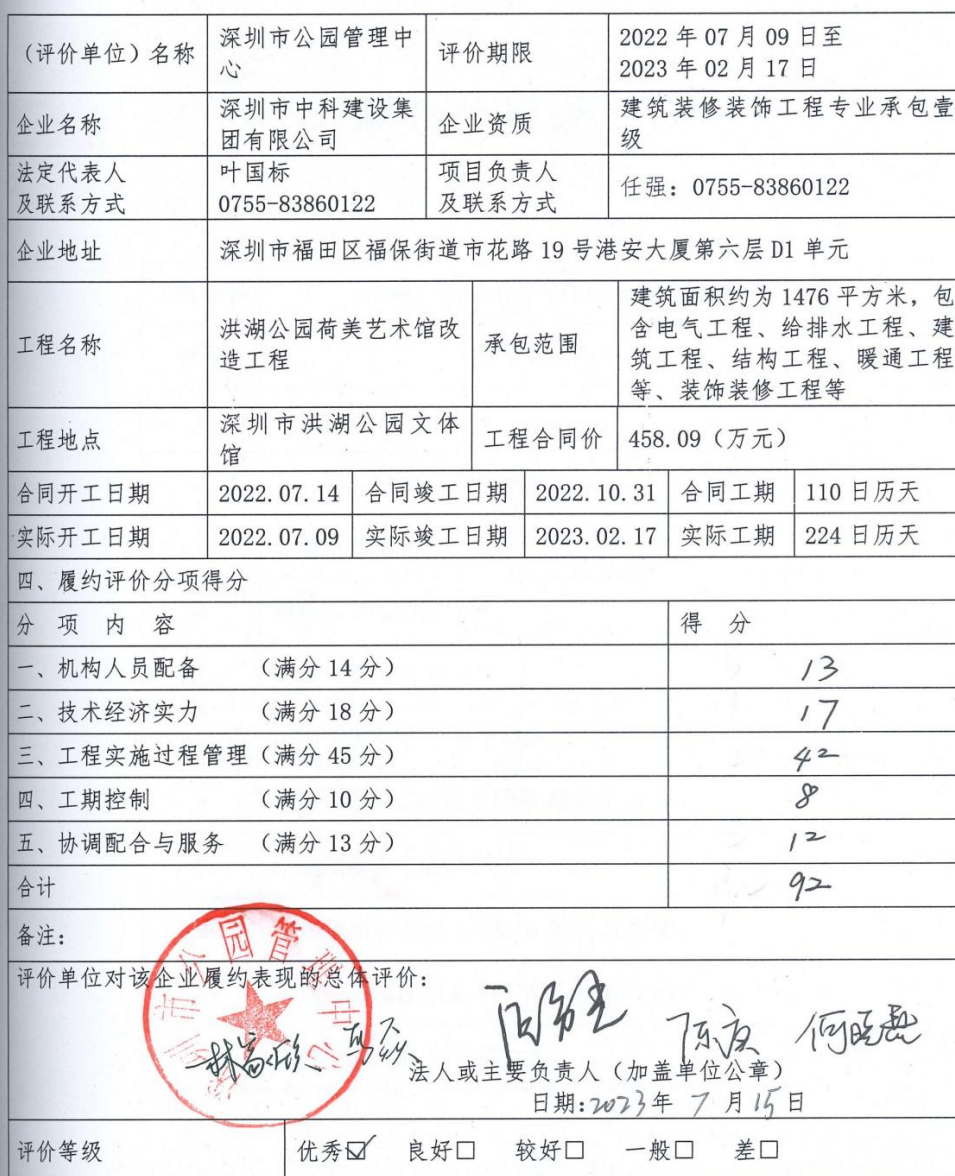 （评价单位）名称 深圳市公园管理中心 评价期限 2022 年 07 月 09 日至 2023 年 02 月 17 日
企业名称 深圳市中科建设集团有限公司 企业资质 建筑装修装饰工程专业承包壹级
法定代表人及联系方式 叶国标 0755-83860122 项目负责人及联系方式 任强：0755-83860122
企业地址 深圳市福田区福保街道市花路 19 号港安大厦第六层 D1 单元
工程名称 洪湖公园荷美艺术馆改造工程 承包范围 建筑面积约为 1476 平方米，包含电气工程、给排水工程、建筑工程、结构工程、暖通工程等、装饰装修工程等
工程地点 深圳市洪湖公园文体馆 工程合同价 458.09（万元）
合同开工日期 2022.07.14 合同竣工日期 2022.10.31 合同工期 110 日历天
实际开工日期 2022.07.09 实际竣工日期 2023.02.17 实际工期 224 日历天
四、履约评价分项得分
分 项 内 容 得 分
一、机构人员配备 （满分 14 分） 13
二、技术经济实力 （满分 18 分） 17
三、工程实施过程管理（满分 45 分） 42
四、工期控制 （满分 10 分） 8
五、协调配合与服务 （满分 13 分） 12
合计 92
备注：
评价单位对该企业履约表现的总体评价：
深圳市公园管理中心
陈庆 何晓磊
法人或主要负责人（加盖单位公章）
日期:2023年 7 月 15 日
评价等级 优秀☑ 良好□ 较好□ 一般□ 差□